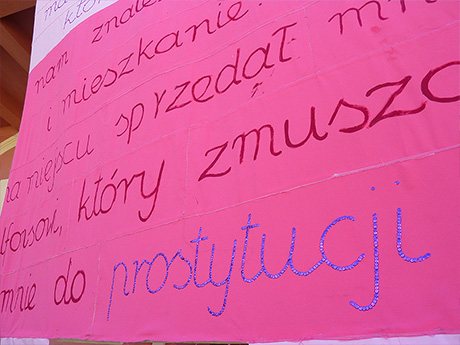 któr
nam znale
i mieszkanie.
na miejscu sprzedał mn
lfonsowi, który zmusza
mnie do prostytucji